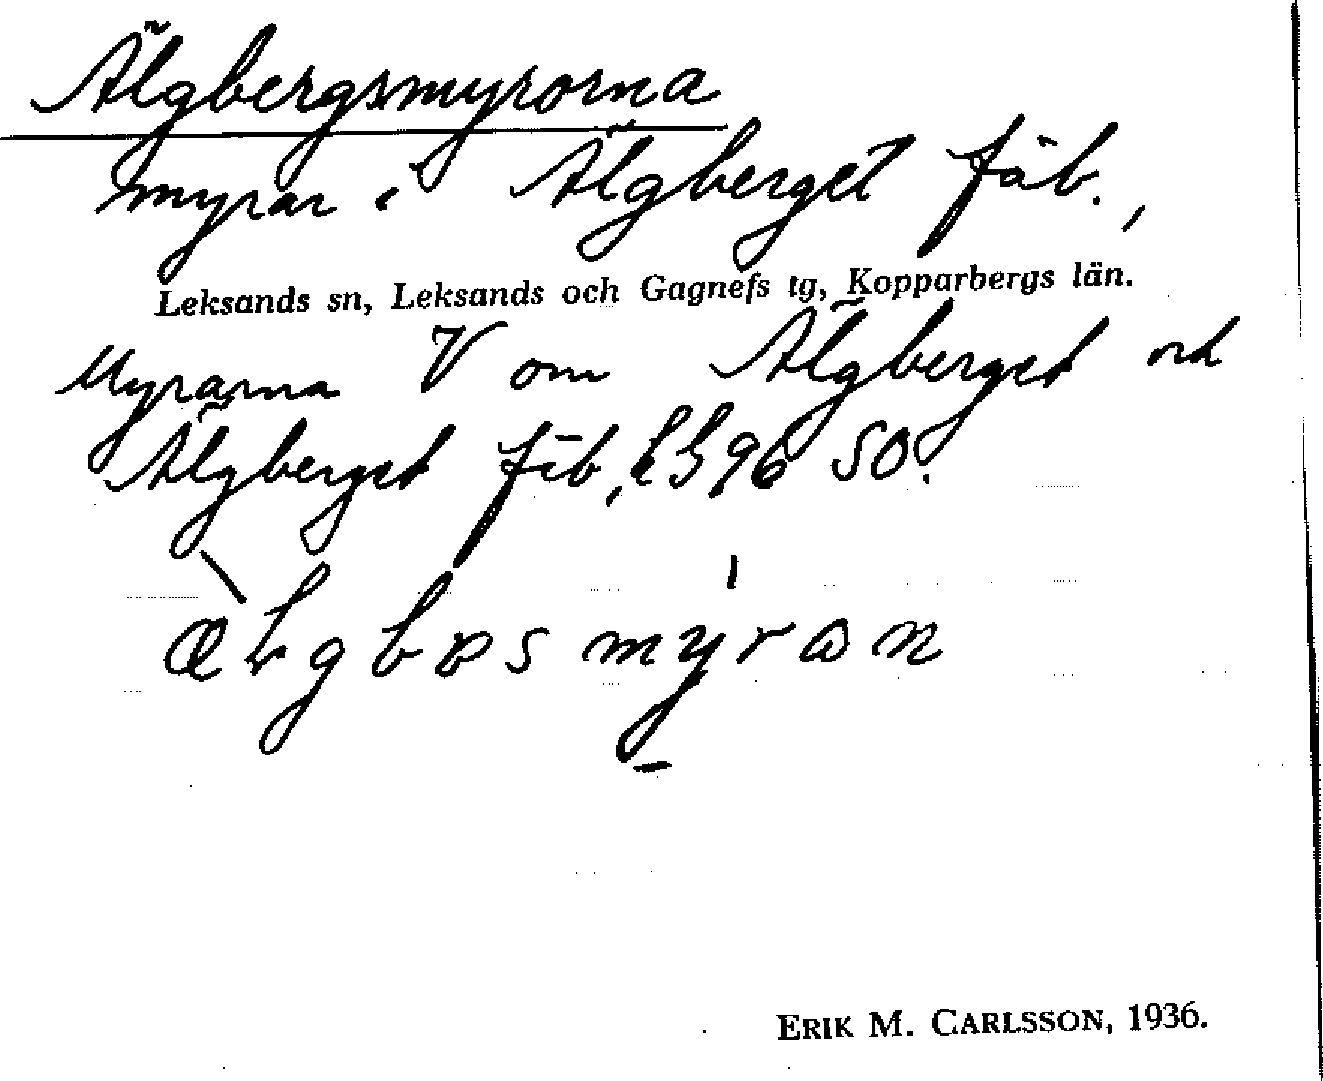 Älgbergsmyrorna
myrar i Älgberget fäb.,
Leksands sn, Leksands och Gagnefs tg, Kopparbergs län.
Myrarna V om Älgberget och
Älgberget fäb, 96 SO.
ERIK M. CARLSSON, 1936.